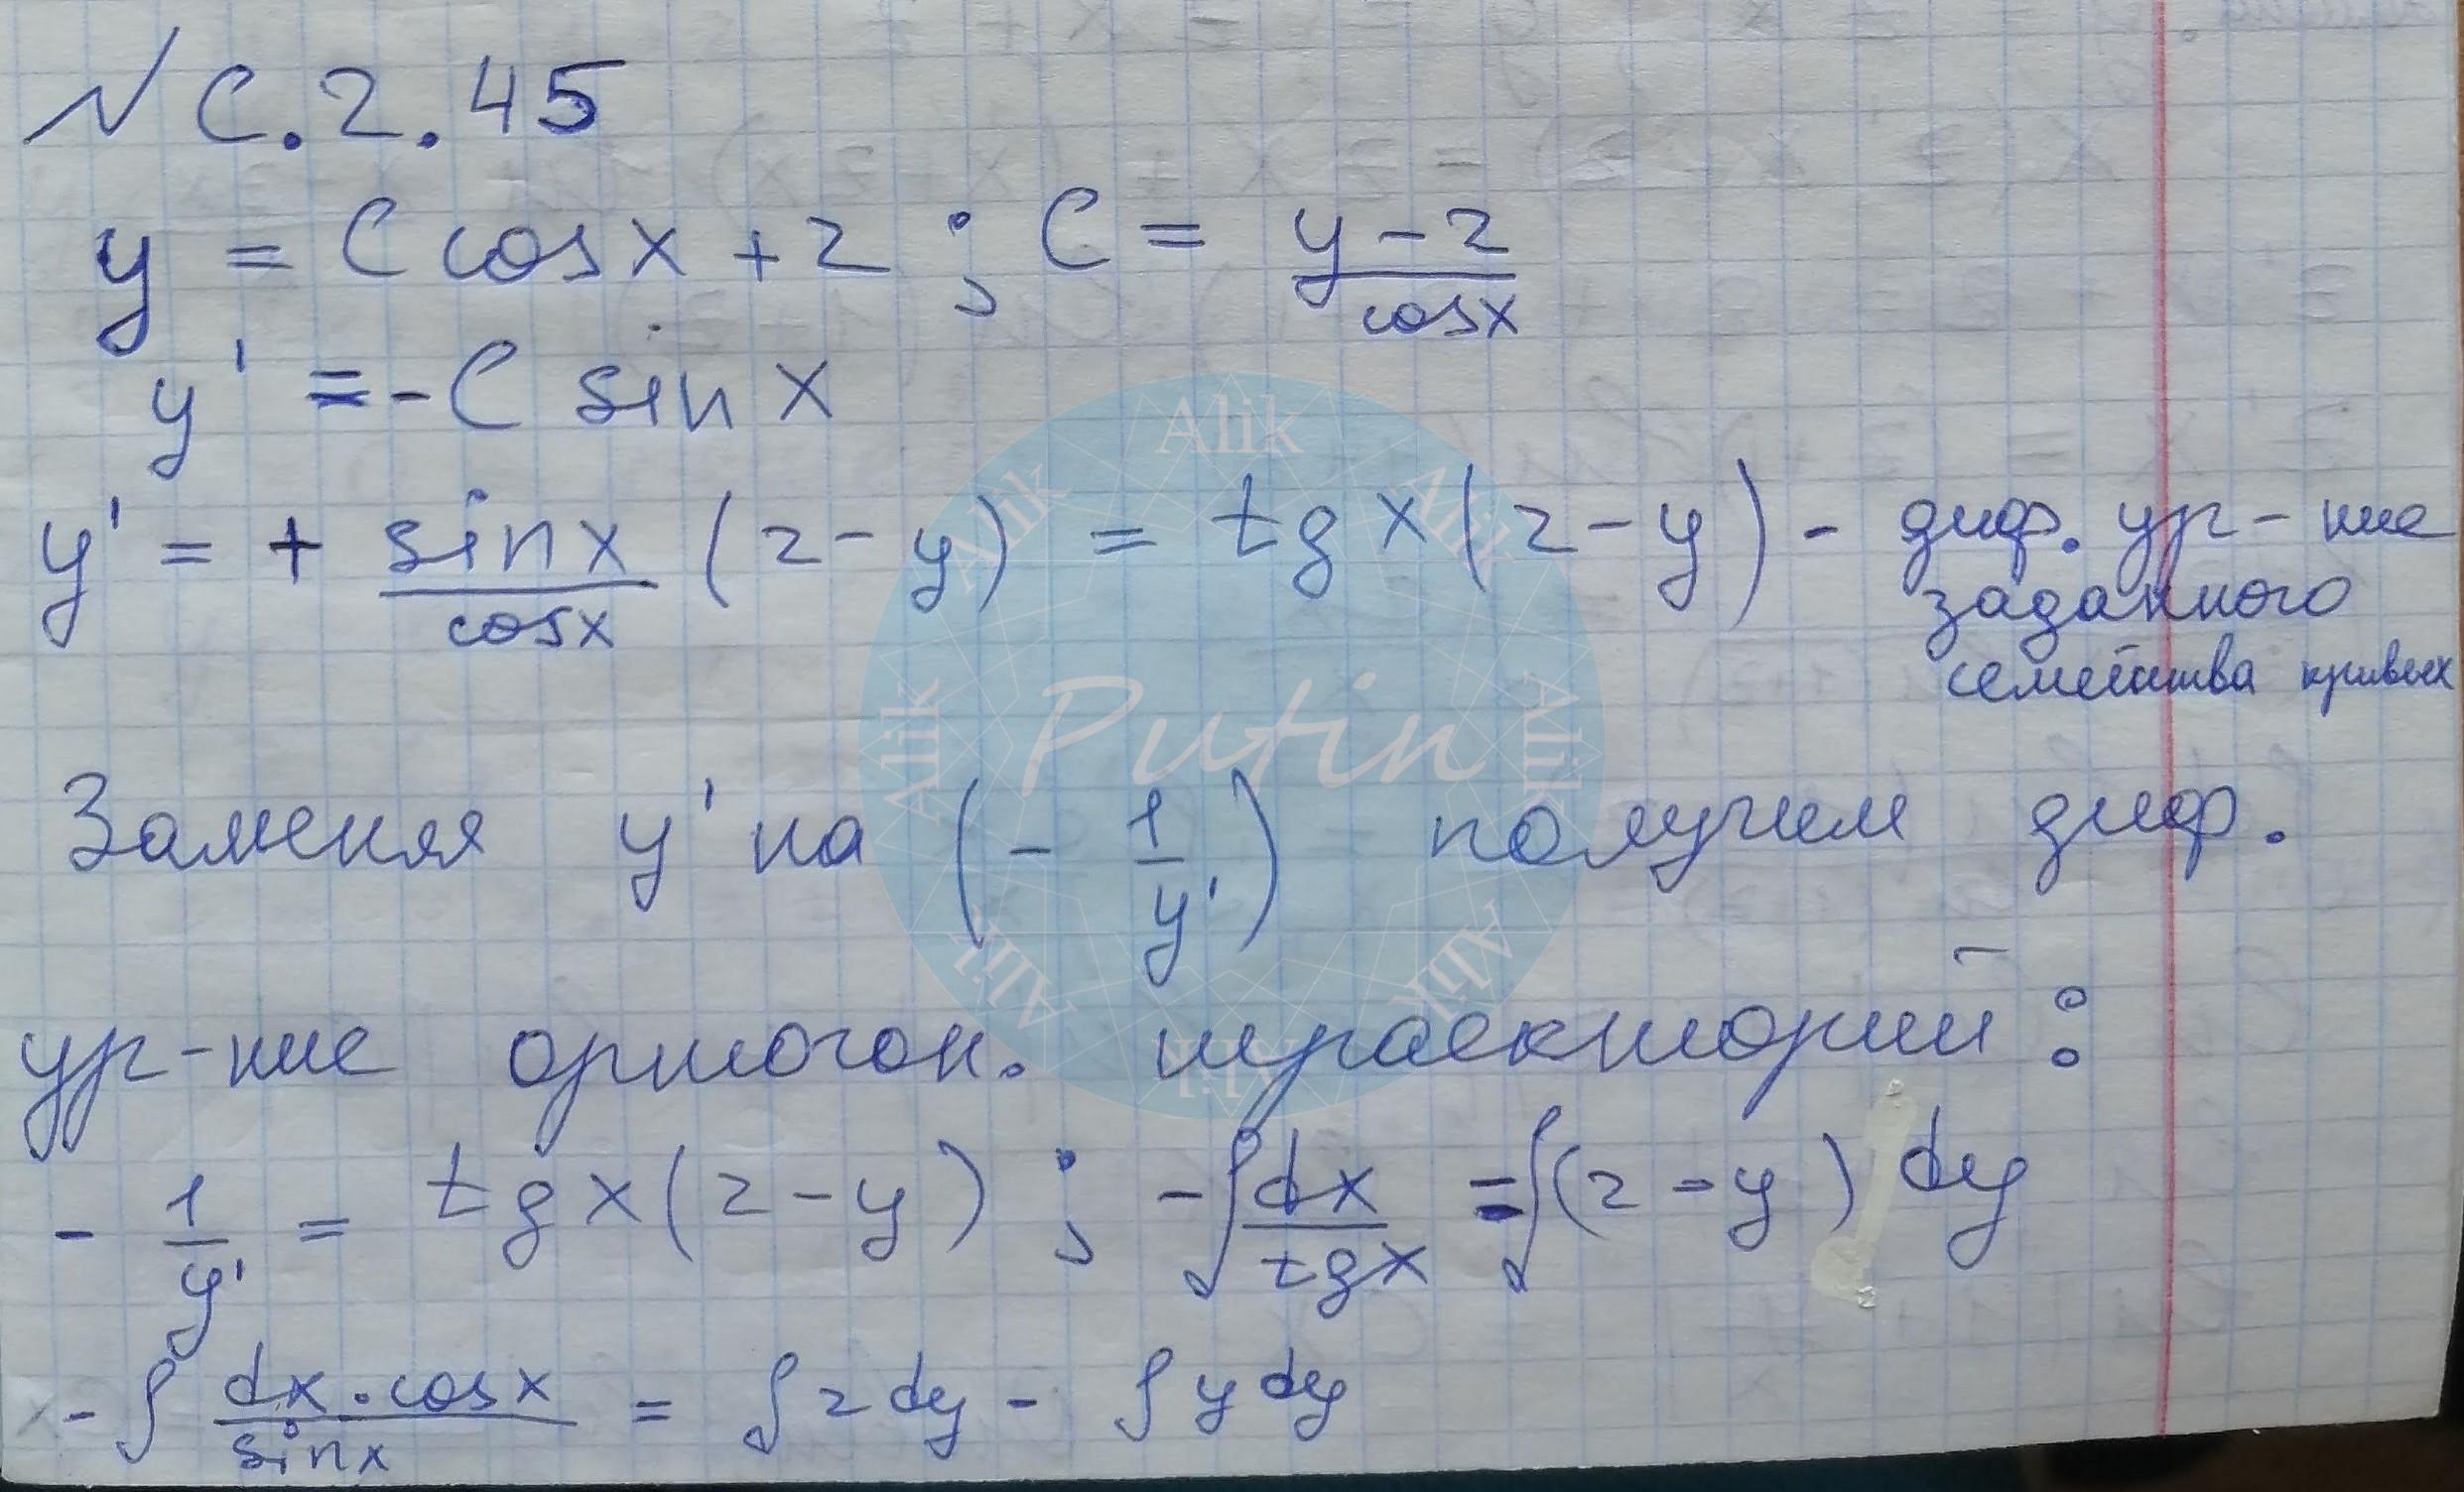 № С.2.45
y = C cos x + 2 ; C = (y - 2)/cos x
y' = - C sin x
y' = + sin x/cos x (2 - y) = tg x (2 - y) - диф. ур-ние
заданного
семейства кривых
Заменяя y' на (- 1/y') получим диф.
ур-ние ортогон. траекторий:
- 1/y' = tg x (2 - y) ; - ∫ dx/tg x = ∫ (2 - y) dy
- ∫ dx · cos x/sin x = ∫ 2 dy - ∫ y dy
Alik
Alik
Alik
Alik
Alik
Alik
Alik
Alik
Putin